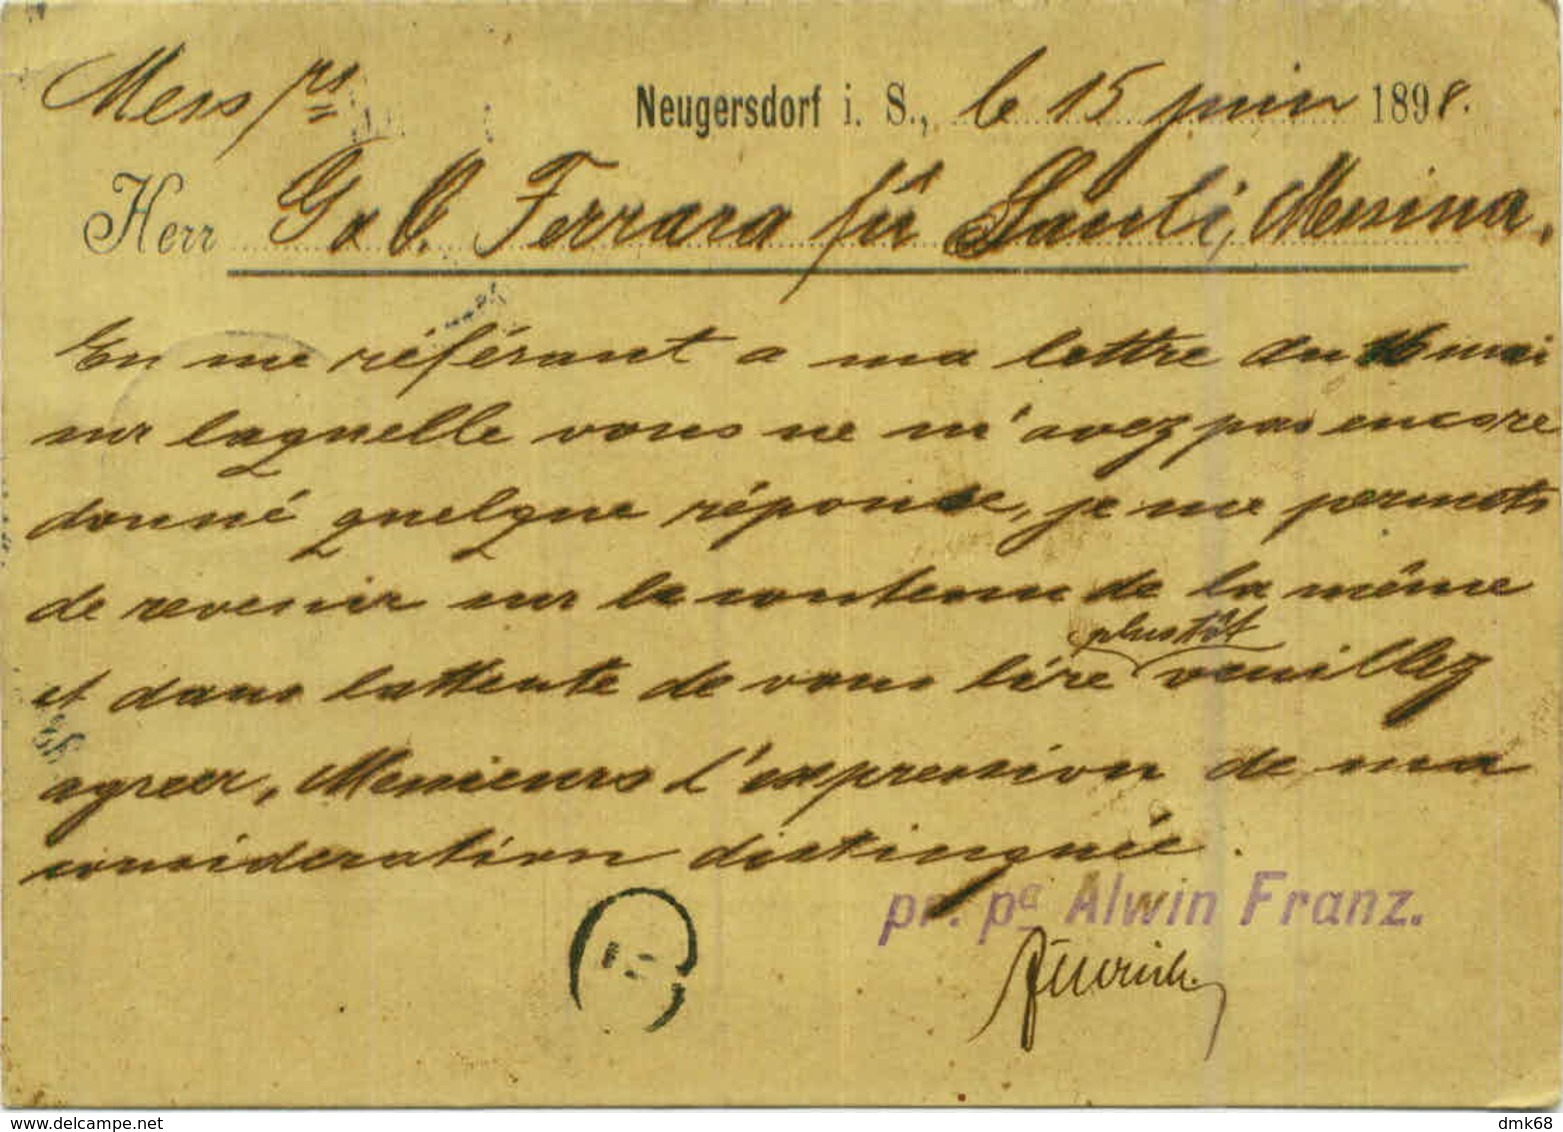 Mess rs
Neugersdorf i. S., le 15 juin 1898.
Herr G & O. Ferrara fu Santi, Messina.
En me référant a ma lettre du 16 mai
sur laquelle vous ne m'avez pas encore
donné quelque réponse, je me permets
de revenir sur le contenu de la même
plustôt
et dans l'attente de vous lire veuillez
agreer, Messieurs l'expression de ma
consideration distinguée.
pr. pa Alwin Franz.
dmk68